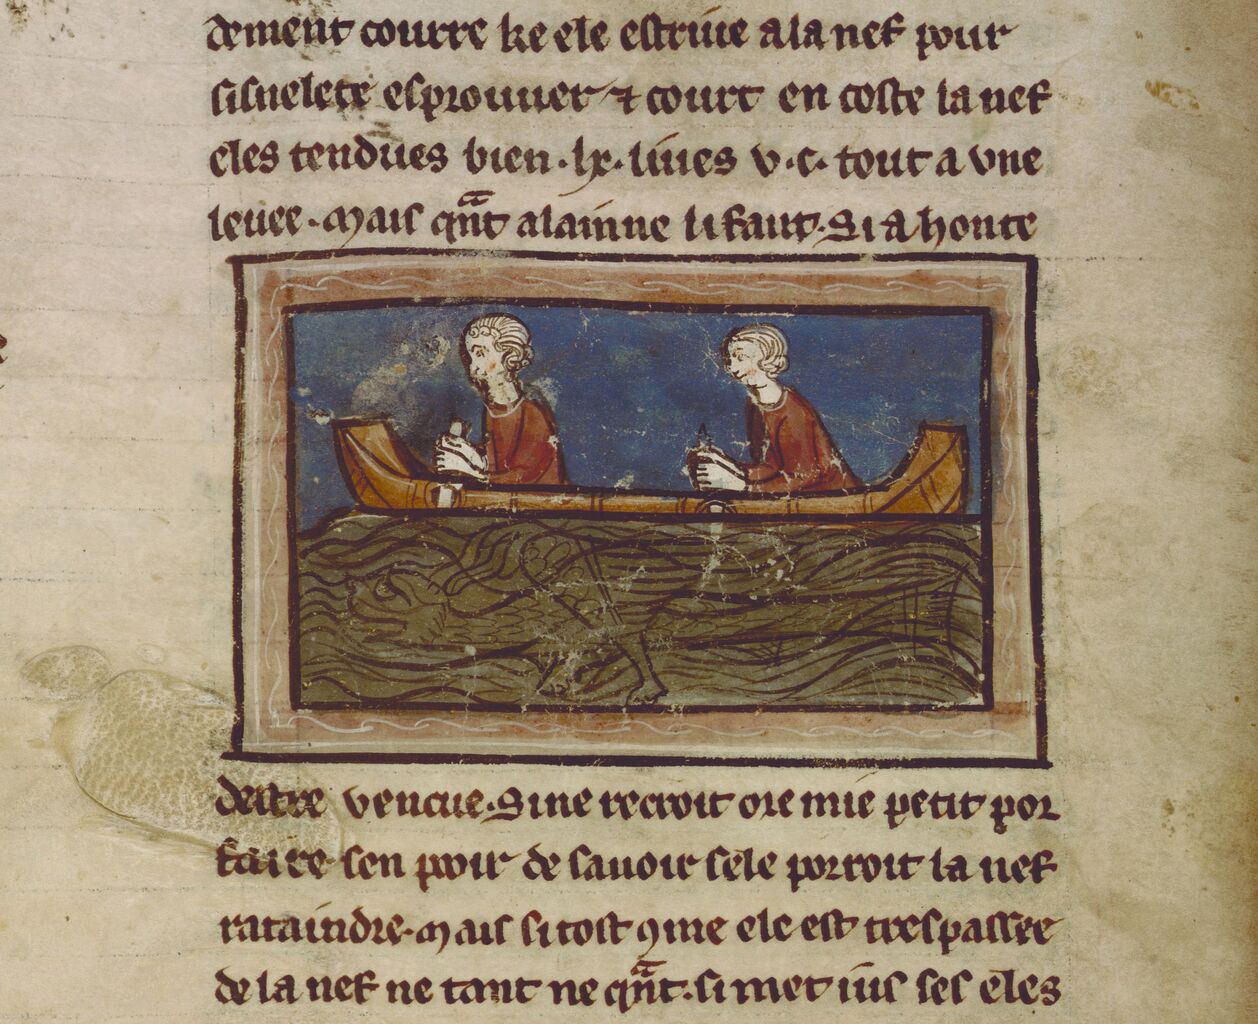 dement courre ke ele estriue a la nef pour
sisnelete esprouuer ⁊ court en coste la nef
eles tendues bien .lx. liues v.c. tout a vne
leuee. Mais qͣnt alainne li faut. Si a honte
destre vencue. Si ne recroit ore mie petit por
faire sen pooir de sauoir sele porroit la nef
rataindre. Mais si tost 9me ele est trespassee
de la nef ne tant ne qͣnt. si met ius ses eles